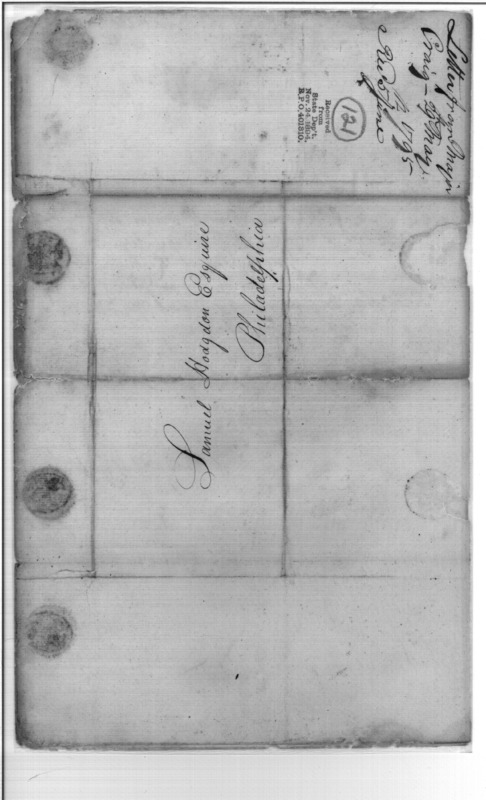 Letter from Major
Craig —
May
1795
Rec'd June
121
Received
from
State Dep't.
Nov. 24, 1894,
R.P.O. 401810.
Samuel Hodgdon Esquire
Philadelphia